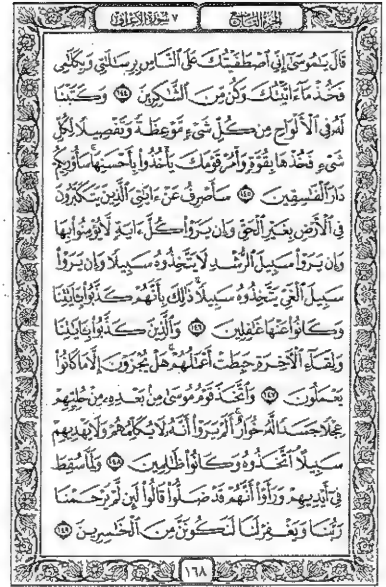 الجزء التاسع ٧ سورة الأعراف
قَالَ يَٰمُوسَىٰٓ إِنِّي ٱصۡطَفَيۡتُكَ عَلَى ٱلنَّاسِ بِرِسَٰلَٰتِي وَبِكَلَٰمِي
فَخُذۡ مَآ ءَاتَيۡتُكَ وَكُن مِّنَ ٱلشَّٰكِرِينَ ١٤٤ وَكَتَبۡنَا
لَهُۥ فِي ٱلۡأَلۡوَاحِ مِن كُلِّ شَيۡءٖ مَّوۡعِظَةٗ وَتَفۡصِيلٗا لِّكُلِّ
شَيۡءٖ فَخُذۡهَا بِقُوَّةٖ وَأۡمُرۡ قَوۡمَكَ يَأۡخُذُواْ بِأَحۡسَنِهَاۚ سَأُوْرِيكُمۡ
دَارَ ٱلۡفَٰسِقِينَ ١٤٥ سَأَصۡرِفُ عَنۡ ءَايَٰتِيَ ٱلَّذِينَ يَتَكَبَّرُونَ
فِي ٱلۡأَرۡضِ بِغَيۡرِ ٱلۡحَقِّ وَإِن يَرَوۡاْ كُلَّ ءَايَةٖ لَّا يُؤۡمِنُواْ بِهَا
وَإِن يَرَوۡاْ سَبِيلَ ٱلرُّشۡدِ لَا يَتَّخِذُوهُ سَبِيلٗا وَإِن يَرَوۡاْ
سَبِيلَ ٱلۡغَيِّ يَتَّخِذُوهُ سَبِيلٗاۚ ذَٰلِكَ بِأَنَّهُمۡ كَذَّبُواْ بِـَٔايَٰتِنَا
وَكَانُواْ عَنۡهَا غَٰفِلِينَ ١٤٦ وَٱلَّذِينَ كَذَّبُواْ بِـَٔايَٰتِنَا
وَلِقَآءِ ٱلۡأٓخِرَةِ حَبِطَتۡ أَعۡمَٰلُهُمۡۚ هَلۡ يُجۡزَوۡنَ إِلَّا مَا كَانُواْ
يَعۡمَلُونَ ١٤٧ وَٱتَّخَذَ قَوۡمُ مُوسَىٰ مِنۢ بَعۡدِهِۦ مِنۡ حُلِيِّهِمۡ
عِجۡلٗا جَسَدٗا لَّهُۥ خُوَارٌۚ أَلَمۡ يَرَوۡاْ أَنَّهُۥ لَا يُكَلِّمُهُمۡ وَلَا يَهۡدِيهِمۡ
سَبِيلًاۘ ٱتَّخَذُوهُ وَكَانُواْ ظَٰلِمِينَ ١٤٨ وَلَمَّا سُقِطَ
فِيٓ أَيۡدِيهِمۡ وَرَأَوۡاْ أَنَّهُمۡ قَدۡ ضَلُّواْ قَالُواْ لَئِن لَّمۡ يَرۡحَمۡنَا
رَبُّنَا وَيَغۡفِرۡ لَنَا لَنَكُونَنَّ مِنَ ٱلۡخَٰسِرِينَ ١٤٩
١٦٨